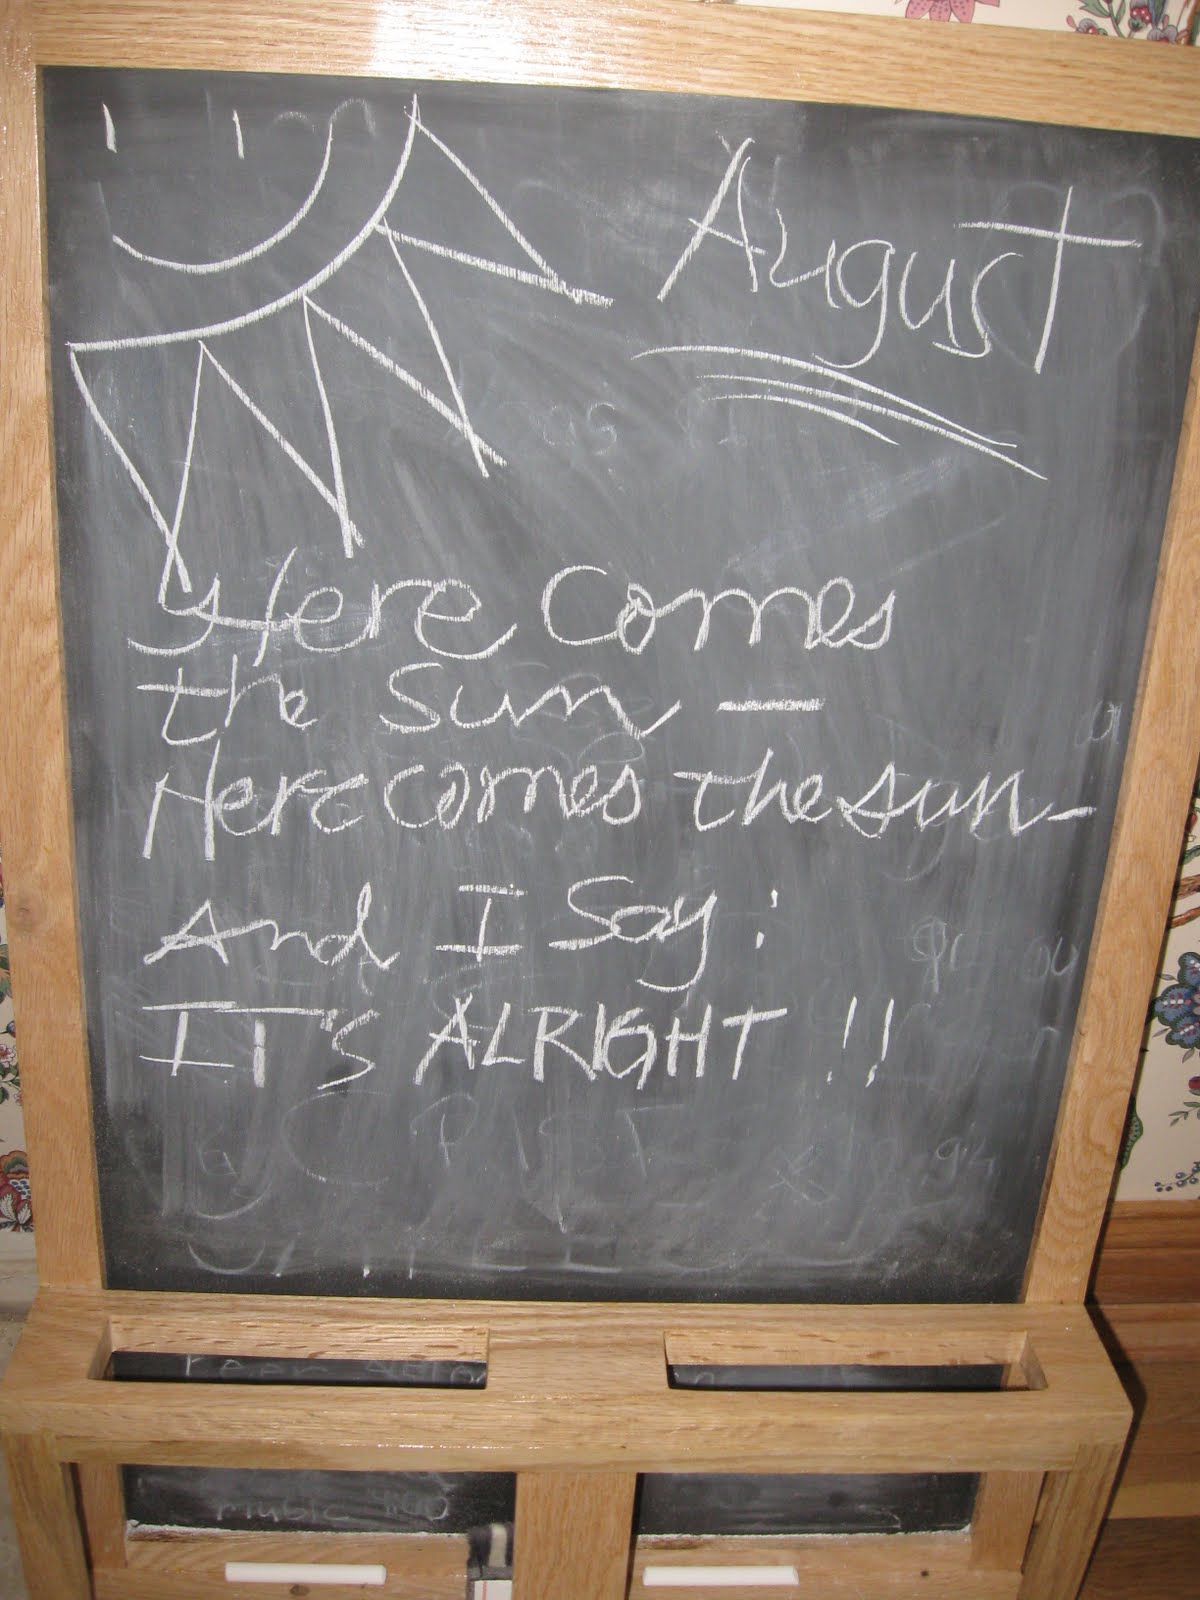 August
Here Comes
the Sun —
Here comes the sun -
And I Say :
IT'S ALRIGHT !!
music 4:00